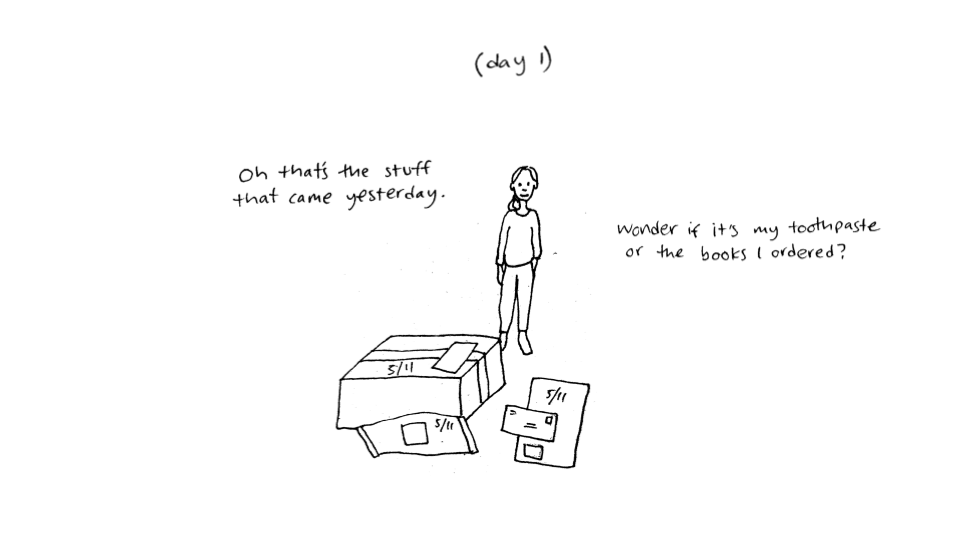 (day 1)
Oh that's the stuff
that came yesterday.
Wonder if it's my toothpaste
or the books I ordered?
5/11
5/11
5/11